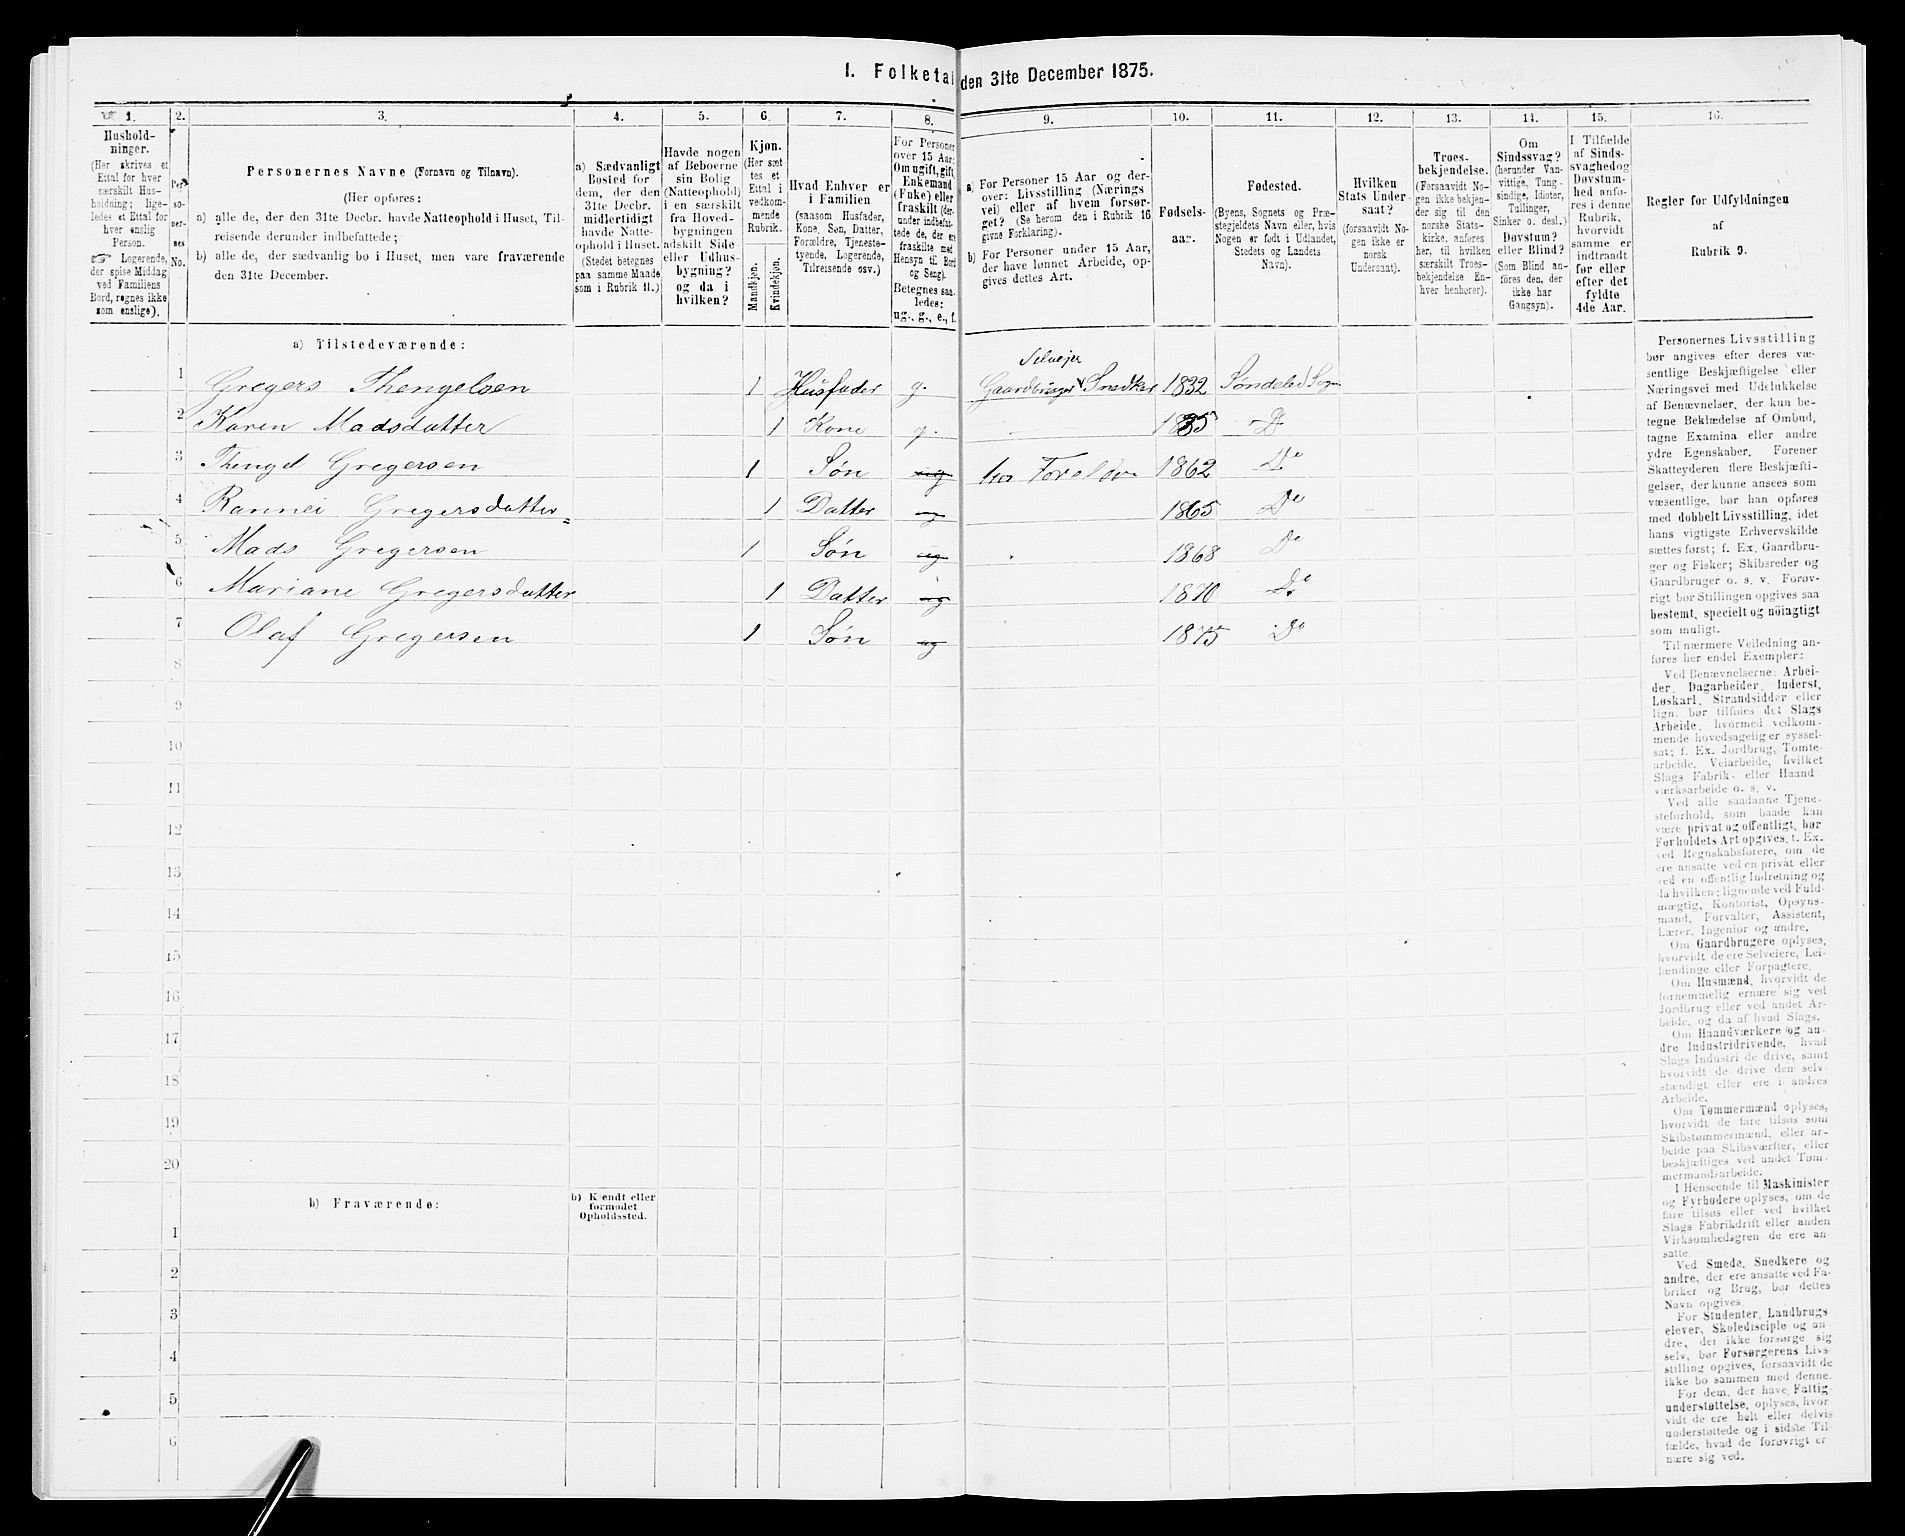 I. Folketal den 31te December 1875.
1. 2. 3. 4. 5. 6. 7. 8. 9. 10. 11. 12. 13. 14. 15. 16.
Hushold-
ninger.
(Her skrives et
Ettal for hver
særskilt Hus-
holdning; lige-
ledes et Ettal for
hver enslig
Person.
☞ Logerende,
der spise Middag
ved Familiens
Bord, regnes ikke
som enslige).
Per-
so-
ner-
nes
No.
Personernes Navne (Fornavn og Tilnavn).
(Her opføres:
a) alle de, der den 31te Decbr. havde Natteophold i Huset, Til-
reisende derunder indbefattede;
b) alle de, der sædvanlig bo i Huset, men vare fraværende
den 31te December.
a) Sædvanligt
Bosted for
dem, der den
31te Decbr.
midlertidigt
havde Natte-
ophold i Huset.
(Stedet betegnes
paa samme Maade
som i Rubrik 11.)
Havde nogen
af Beboerne
sin Bolig
(Natteophold)
i en særskilt
fra Hoved-
bygningen
adskilt Side-
eller Udhus-
bygning?
og da i
hvilken?
Kjøn.
(Her sæt-
tes et
Ettal i
vedkom-
mende
Rubrik.
Mandkjøn.
Kvindekjøn.
Hvad Enhver er
i Familien
(saasom Husfader,
Kone, Søn, Datter,
Forældre, Tjeneste-
tyende, Logerende,
Tilreisende osv.)
For Personer
over 15 Aar:
Om ugift, gift,
Enkemand
(Enke) eller
fraskilt (der-
under indbefat-
tede de, der ere
fraskilte med
Hensyn til Bord
og Seng).
Betegnes saa-
ledes:
ug., g., e., f.
a) For Personer 15 Aar og der-
over: Livsstilling (Nærings-
vei) eller af hvem forsør-
get? (Se herom den i Rubrik 16
givne Forklaring).
b) For Personer under 15 Aar,
der have lønnet Arbeide, op-
gives dettes Art.
Fødsels-
aar.
Fødested.
(Byens, Sognets og Præ-
stegjeldets Navn eller, hvis
Nogen er født i Udlandet,
Stedets og Landets
Navn).
Hvilken
Stats Under-
saat?
(forsaavidt No-
gen ikke er
norsk
Undersaat).
Troes-
bekjendelse.
(Forsaavidt No-
gen ikke bekjen-
der sig til den
norske Stats-
kirke, anføres
her, til hvilken
særskilt Troes-
bekjendelse En-
hver henhører).
Om
Sindssvag?
(herunder Van-
vittige, Tung-
sindige, Idioter,
Tullinger,
Sinker o. desl.)
Døvstum?
eller Blind?
(Som Blind an-
føres den, der
ikke har
Gangsyn).
I Tilfælde
af Sinds-
svaghed og
Døvstum-
hed anfø-
res i denne
Rubrik,
hvorvidt
samme er
indtraadt
før eller
efter det
fyldte
4de Aar.
Regler for Udfyldningen
af
Rubrik 9.
a) Tilstedeværende:
Selveier
1 Gregers Thengelsen 1 Husfader g. Gaardbruger Snedker 1832 Søndeled Sogn
2 Karen Madsdatter 1 Kone g. 1835 D
3 Thengel Gregersen 1 Søn ug hos Foreldre 1862 Do
4 Rannei Gregersdatter 1 Datter ug 1865 Do
5 Mads Gregersen 1 Søn ug 1868 Do
6 Mariane Gregersdatter 1 Datter ug 1870 Do
7 Olaf Gregersen 1 Søn ug 1875 Do
8
9
10
11
12
13
14
15
16
17
18
19
20
b) Fraværende:
b) Kjendt eller
formodet
Opholdssted.
1
2
3
4
5
6
Personernes Livsstilling
bør angives efter deres væ-
sentlige Beskjæftigelse eller
Næringsvei med Udelukkelse
af Benævnelser, der kun be-
tegne Beklædelse af Ombud,
tagne Examina eller andre
ydre Egenskaber. Forener
Skatteyderen flere Beskjæfti-
gelser, der kunne ansees som
væsentlige, bør han opføres
med dobbelt Livsstilling, idet
hans vigtigste Erhvervskilde
sættes først; f. Ex. Gaardbru-
ger og Fisker; Skibsreder og
Gaardbruger o. s. v. Forøv-
rigt bør Stillingen opgives saa
bestemt, specielt og nöiagtigt
som muligt.
Til nærmere Veiledning an-
føres her endel Exempler:
Ved Benævnelserne: Arbei-
der, Dagarbeider, Inderst,
Løskarl, Strandsidder eller
lign. bør tilføies det Slags
Arbeide, hvormed vedkom-
mende hovedsagelig er syssel-
sat; f. Ex. Jordbrug, Tomte-
arbeide, Veiarbeide, hvilket
Slags Fabrik- eller Haand-
værksarbeide o. s. v.
Ved alle saadanne Tjene-
steforhold, som baade kan
være privat og offentligt, bør
Forholdets Art opgives, t. Ex.
ved Regnskabsførere, om de
ere ansatte ved en privat eller
ved en offentlig Indretning og
da hvilken; lignende ved Fuld-
mægtig, Kontorist, Opsyns-
mand, Forvalter, Assistent,
Lærer, Ingeniør og andre.
Om Gaardbrugere oplyses,
hvorvidt de ere Selveiere, Lei-
lændinge eller Forpagtere.
Om Husmænd, hvorvidt de
fornemmelig ernære sig ved
Jordbrug eller ved andet Ar-
beide, og da af hvad Slags.
Om Haandværkere og an-
dre Industridrivende, hvad
Slags Industri de drive, samt
hvorvidt de drive den selv-
stændigt eller ere i andres
Arbeide.
Om Tømmermænd oplyses,
hvorvidt de fare tilsøs som
Skibstømmermænd, eller ar-
beide paa Skibsværfter, eller
beskjæftiges ved andet Tøm-
mermandsarbeide.
I Henseende til Maskinister
og Fyrbødere oplyses, om de
fare tilsøs eller ved hvilket
Slags Fabrikdrift eller anden
Virksomhedsgren de ere an-
satte.
Ved Smede, Snedkere og
andre, der ere ansatte ved Fa-
briker og Brug, bør dettes
Navn opgives.
For Studenter, Landbrugs-
elever, Skoledisciple og an-
dre, der ikke forsørge sig
selv, bør Forsørgerens Livs-
stilling opgives, forsaavidt de
ikke bo sammen med denne.
For dem, der have Fattig-
understøttelse, oplyses, hvor-
vidt de ere helt eller delvis
understøttede og i sidste Til-
fælde, hvad de forøvrigt er-
nære sig ved.